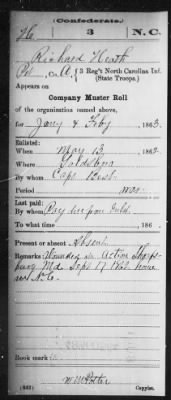 (Confederate.)
H 3 N.C.
Richard Heath
Pvt., Co. A, 3 Reg't North Carolina Inf.
(State Troops.)
Appears on
Company Muster Roll
of the organization named above,
for Jany & Feby, 1863.
Enlisted:
When May 13, 1862.
Where Goldsboro
By whom Capt
Period war
Last paid:
By whom Pay
To what time , 186 .
Present or absent Absent
Remarks: Wounded in Action Sharps-
burg Md Sept 17 1862 now
in N.C.
Book mark:
(642) Copyist.